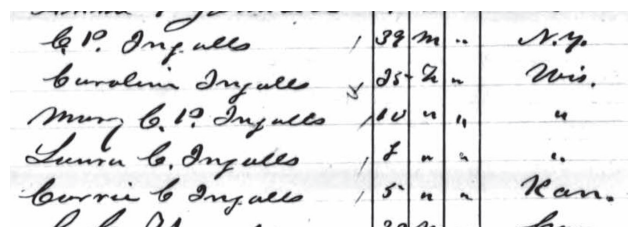 C. P. Ingalls / 39 m " N.Y.
Caroline Ingalls / 35 F " Wis.
Mary C. P. Ingalls / 10 " " "
Laura C. Ingalls / 7 " " "
Carrie C Ingalls / 5 " " Kan.